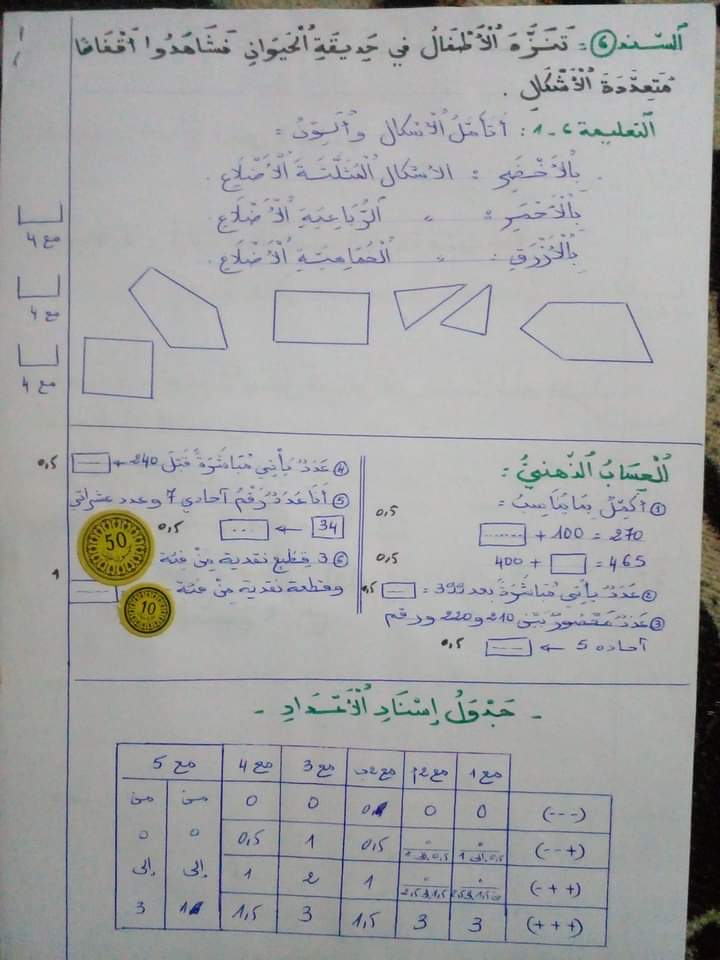 السند 6 : تنزه الأطفال في حديقة الحيوان فشاهدوا أقفاصا
متعددة الأشكال .
التعليمة 6 - 1 : أتأمل الأشكال وألون :
بالأخضر : الأشكال المثلثة الأضلاع .
بالأحمر : " الرباعية الأضلاع .
بالأزرق : " الخماسية الأضلاع .
مع 4
مع 4
مع 4
الحساب الذهني :
① أكمل بما يناسب :
0,5
....... + 100 = 270
0,5
400 + = 465
② عدد يأتي مباشرة بعد 399 = ---- 0,5
③ عدد محصور بين 210 و 220 ورقم
آحاده 5 ← ---- 0,5
④ عدد يأتي مباشرة قبل 240 ← ---- 0,5
⑤ أنا عدد رقم آحادي 7 وعدد عشراتي
34 ← ... 0,5
⑥ 3 قطع نقدية من فئة 50
وقطعة نقدية من فئة 10 ---- 1
- جدول إسناد الأعداد -
مع 1 مع 2أ مع 2ب مع 3 مع 4 مع 5
(---) 0 0 0 0 0 من من
(--+) 0,5 إلى 1 0,5 1 0,5 0 0
(-++) 1 2 1 إلى إلى
(+++) 3 3 1,5 3 1,5 1 3